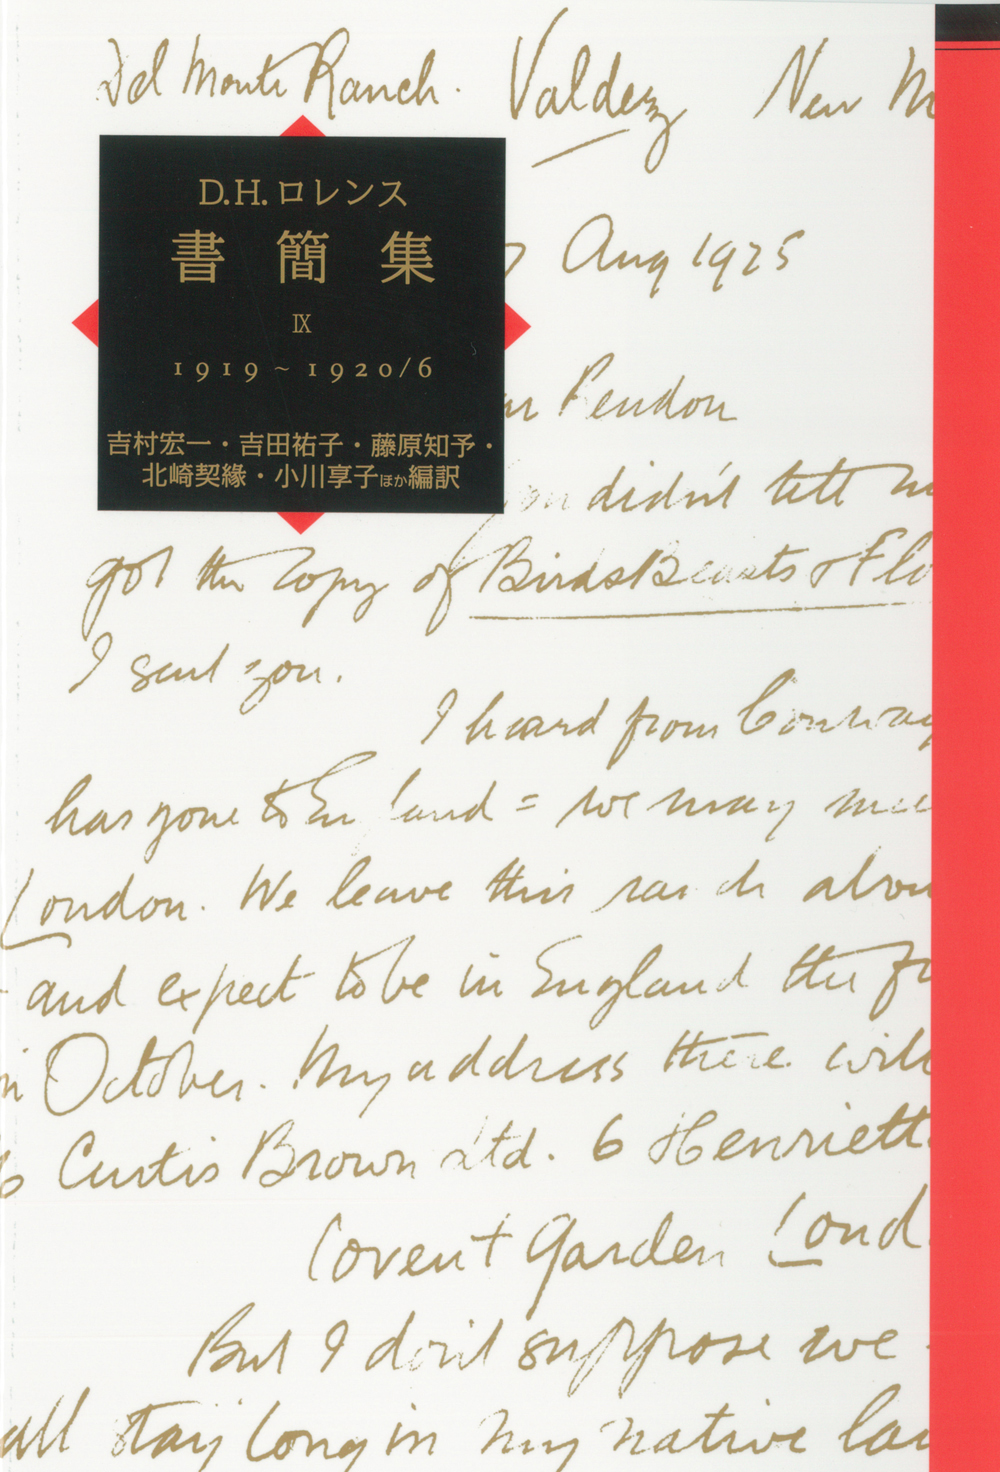 Del Monte Ranch. Valdez New M
D.H.ロレンス
書簡集
Ⅸ
1919~1920/6
吉村宏一・吉田祐子・藤原知予・
北崎契緣・小川享子ほか編訳
Aug 1925
didn't tell
got the copy of Birds Beasts & Flo
I sent you.
I heard from Conway
has gone to England = we may mee
London. We leave this ranch abou
and expect to be in England the
October. My address there will
Curtis Brown Ltd. 6 Henriett
Covent Garden Lond
But I don't suppose we
all stay long in my native lan